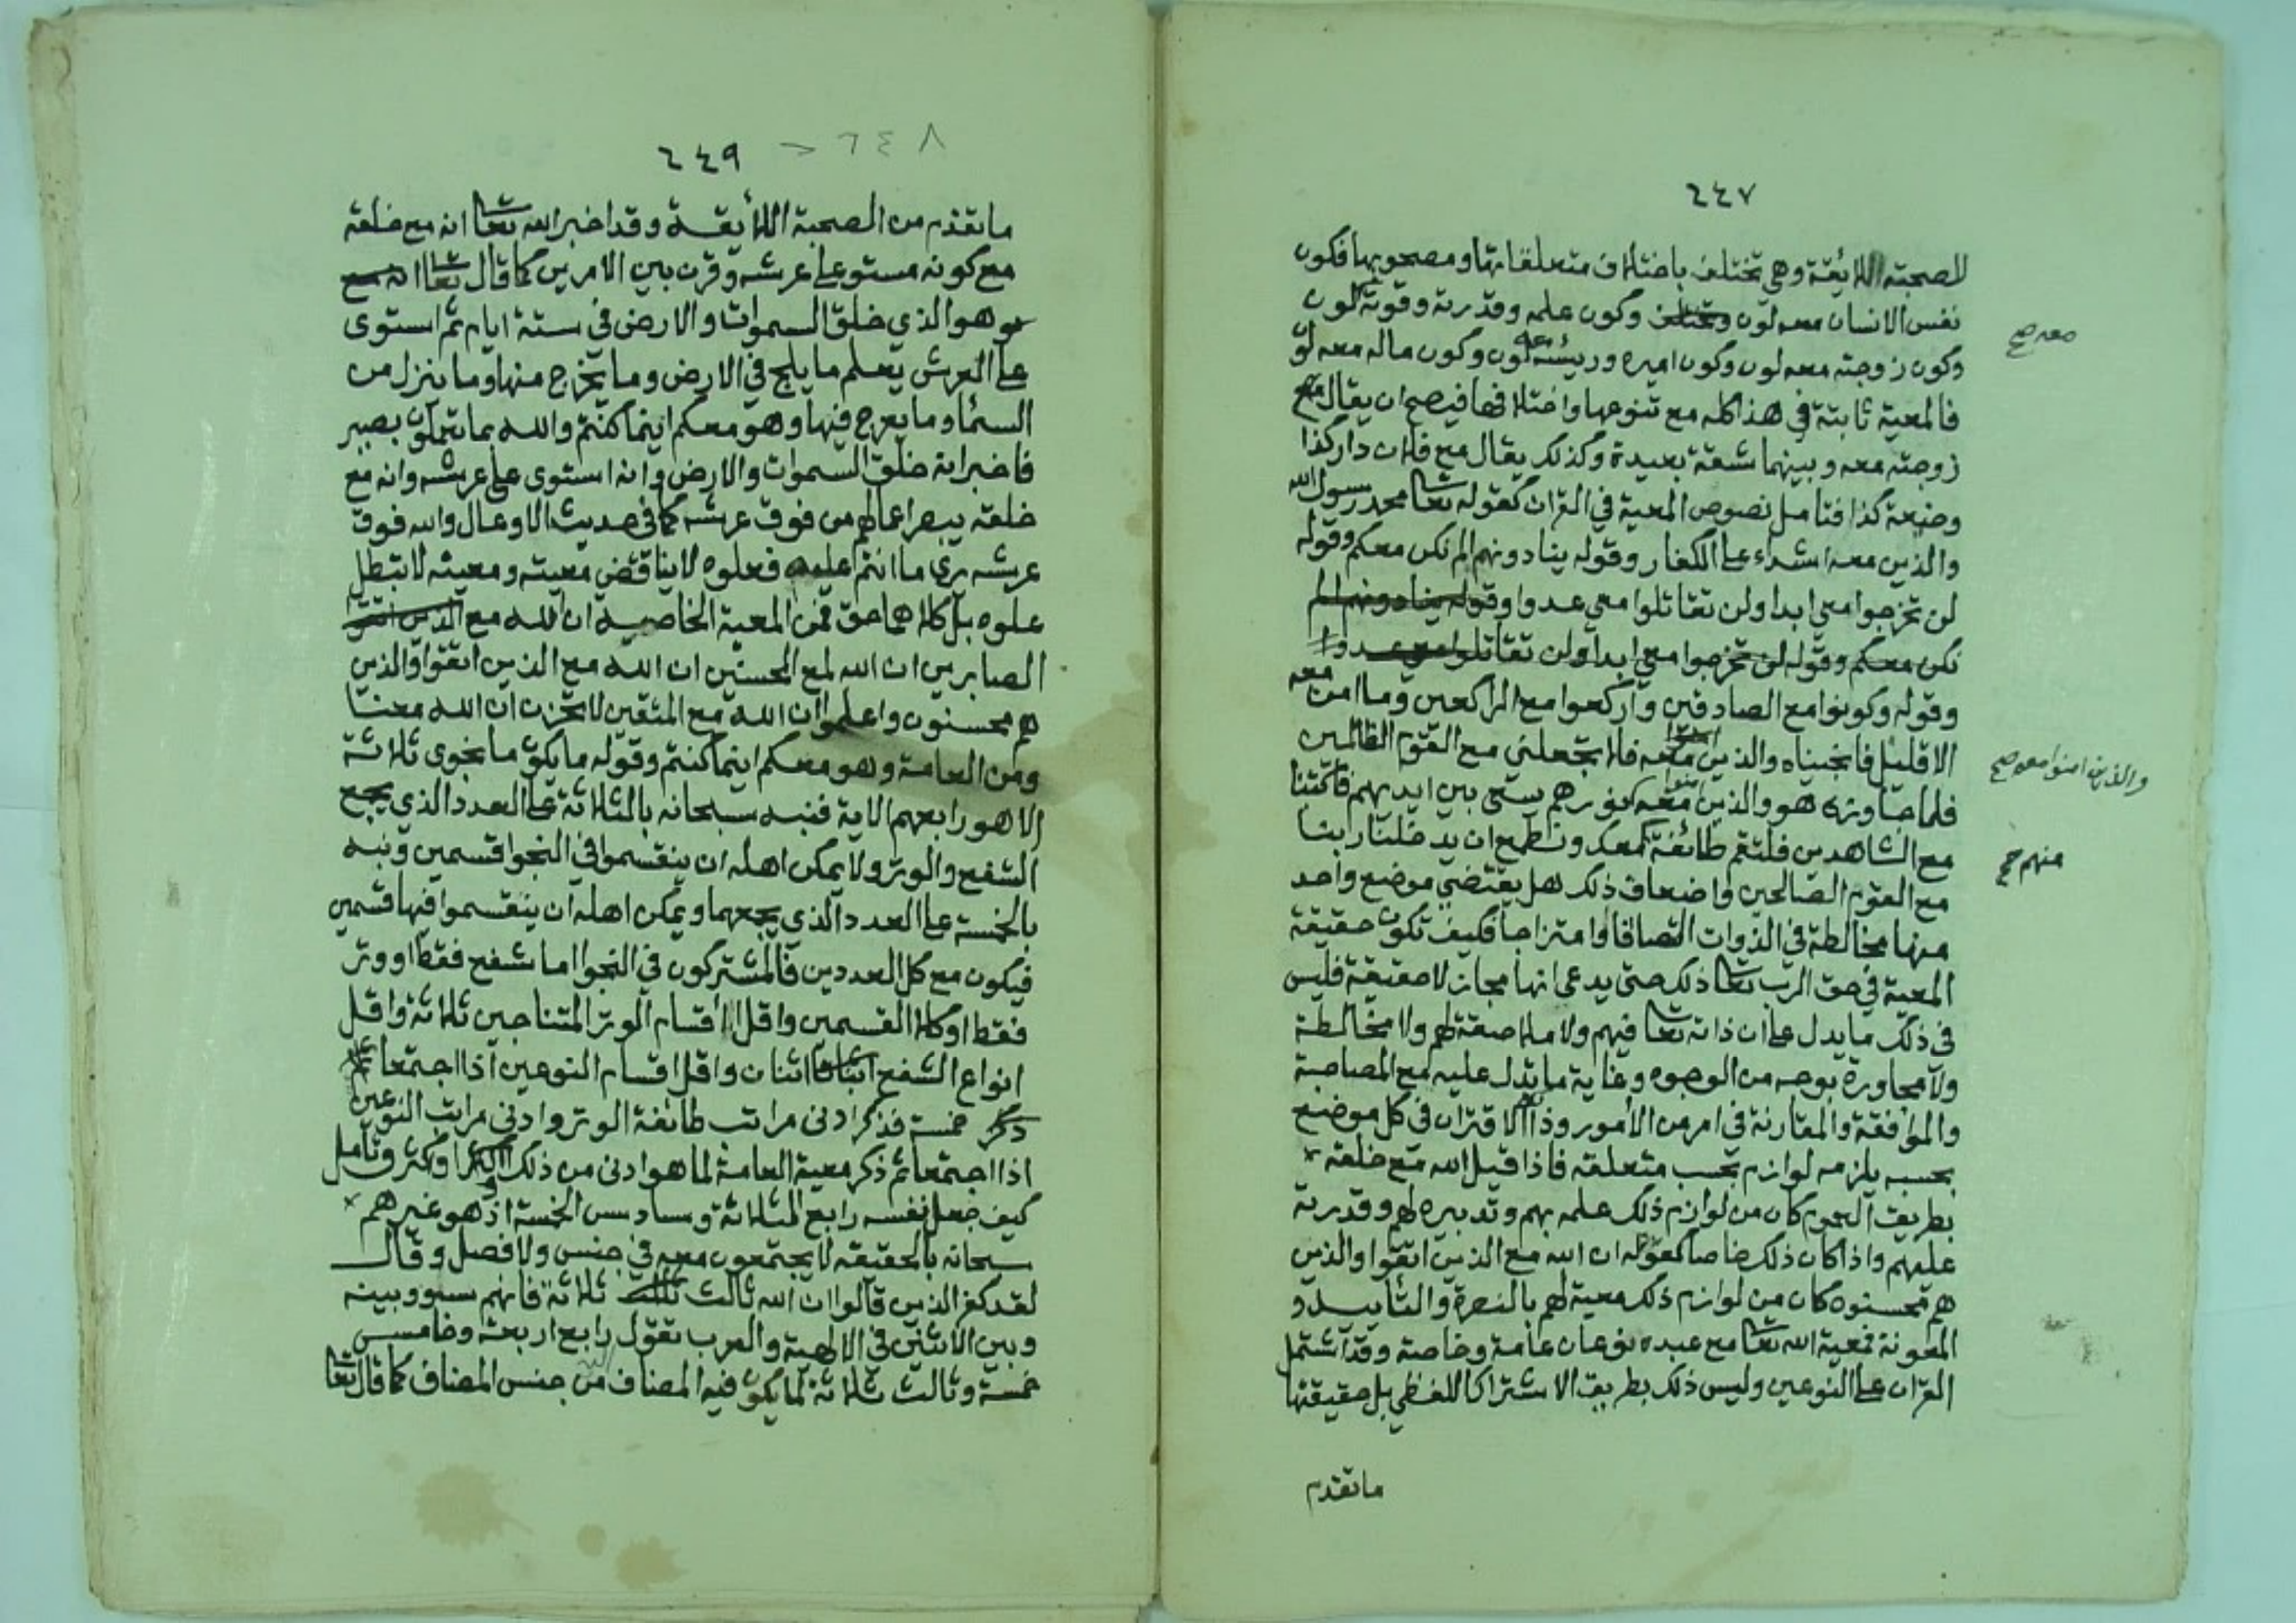 ٢٤٧
للصحبته اللائقة وهي تختلف باختلاف متعلقاتها ومصحوبها فكون
نفس الانسان معه لون وكون علمه وقدرته وقوته لون
معه صح
وكون زوجته معه لون وكون اميره ورئيسه معه لون وكون ماله معه لون
فالمعية ثابتة في هذا كله مع تنوعها واختلافها فيصح ان يقال
زوجته معه وبينهما شقة بعيدة وكذلك يقال مع فلان دار كذا
وضيعة كذا فتامل نصوص المعية في القران كقوله تعا محمد رسول الله
والذين معه اشداء على الكفار وقوله ينادونهم الم نكن معكم وقوله
لن تخرجوا معي ابدا ولن تقاتلوا معي عدوا وقوله ينادونهم الم
نكن معكم وقوله لن تخرجوا معي ابدا ولن تقاتلوا معي عدوا
وقوله وكونوا مع الصادقين واركعوا مع الراكعين وما امن معه
الا قليل فانجيناه والذين معه فلا تجعلني مع القوم الظالمين
والذين امنوا معه صح
فلما جاوزه هو والذين امنوا معه نورهم يسعى بين ايديهم فاكتبنا
مع الشاهدين فلتقم طائفة معك ونطمع ان يدخلنا ربنا
منهم صح
مع القوم الصالحين واضعاف ذلك هل يقتضي موضع واحد
منها مخالطة في الذوات التصاقا وامتزاجا فكيف تكون حقيقة
المعية في حق الرب تعا ذلك حتى يدعى انها مجاز لا حقيقة فليس
في ذلك ما يدل على ان ذاته تعا فيهم ولا ملاصقة لهم ولا مخالطة
ولا مجاورة بوجه من الوجوه وغاية ما تدل عليه مع المصاحبة
والموافقة والمقارنة في امر من الامور وذا الاقتران في كل موضع
بحسبه يلزمه لوازم بحسب متعلقه فاذا قيل الله مع خلقه
بطريق العموم كان من لوازم ذلك علمه بهم وتدبيره لهم وقدرته
عليهم واذا كان ذلك خاصا كقوله ان الله مع الذين اتقوا والذين
هم محسنون كان من لوازم ذلك معية لهم بالنصرة والتاييد و
المعونة فمعية الله تعا مع عبده نوعان عامة وخاصة وقد اشتمل
القران على النوعين وليس ذلك بطريق الاشتراك اللفظي بل حقيقتها
ما تقدم
٢٤٨
٢٤٩
ما تقدم من الصحبة اللائقة وقد اخبر الله تعا انه مع خلقه
مع كونه مستو على عرشه وقرن بين الامرين كما قال تعا
هو الذي خلق السموات والارض في ستة ايام ثم استوى
على العرش يعلم ما يلج في الارض وما يخرج منها وما ينزل من
السماء وما يعرج فيها وهو معكم اينما كنتم والله بما تعملون بصير
فاخبر انه خلق السموات والارض وانه استوى على عرشه وانه مع
خلقه يبصر اعمالهم من فوق عرشه كما في حديث الاوعال والله فوق
عرشه يرى ما انتم عليه فعلوه لا يناقض معيته ومعيته لا تبطل
علوه بل كلاهما حق فمن المعية الخاصة ان الله مع الذين اتقوا
الصابرين ان الله لمع المحسنين ان الله مع الذين اتقوا والذين
هم محسنون واعلموا ان الله مع المتقين لا تحزن ان الله معنا
ومن العامة وهو معكم اينما كنتم وقوله ما يكون من نجوى ثلاثة
الا هو رابعهم الاية فنبه سبحانه بالثلاثة على العدد الذي يجمع
الشفع والوتر ولا يمكن اهله ان ينقسموا في النجوا قسمين ونبه
بالخمسة على العدد الذي يجمعهما ويمكن اهله ان ينقسموا فيها قسمين
فيكون مع كل العددين فالمشتركون في النجوا اما شفع فقط او وتر
فقط او كلا القسمين واقل اقسام الوتر المتناجين ثلاثة واقل
انواع الشفع اثنان واقل اقسام النوعين اذا اجتمعا
ذكر خمسة فذكر ادنى مراتب طائفة الوتر وادنى مراتب النوعين
اذا اجتمعا ثم ذكر معية العامة لما هو ادنى من ذلك او اكثر وتامل
كيف جعل نفسه رابع الثلاثة وسادس الخمسة اذ هو غيرهم
سبحانه بالحقيقه لا يجتمعون معه في جنس ولا فصل وقال
لقد كفر الذين قالوا ان الله ثالث ثلاثة فانهم سووا بينه
وبين الاثنين في الالهية والعرب تقول رابع اربعة وخامس
خمسة وثالث ثلاثة لما يكون فيه المضاف من جنس المضاف كما قال تعا